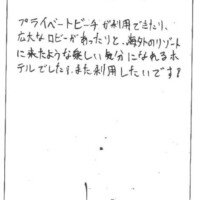 プライベートビーチが利用できたり、
広大なロビーがあったりと、海外のリゾート
に来たような楽しい気分になれるホ
テルでした!!また利用したいです!